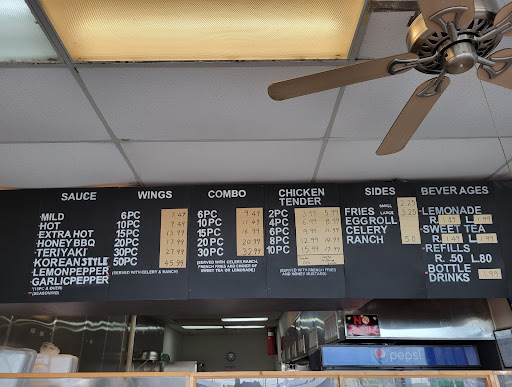 SAUCE
MILD
HOT
EXTRA HOT
HONEY BBQ
TERIYAKI
KOREAN STYLE
LEMONPEPPER
GARLICPEPPER
WINGS
6PC 7.49
10PC 9.49
15PC 13.99
20PC 17.99
30PC 27.99
50PC 45.99
(SERVED WITH CELERY & RANCH)
COMBO
6PC 9.49
10PC 11.49
15PC 16.49
20PC 20.99
30PC
(SERVED WITH CELERY, RANCH,
FRENCH FRIES AND CHOICE OF
SWEET TEA OR LEMONADE)
CHICKEN
TENDER
2PC
4PC
6PC
8PC
10PC
(SERVED WITH FRENCH FRIES
AND HONEY MUSTARD)
SIDES
SMALL 2.25
FRIES LARGE
EGGROLL
CELERY
RANCH .50
BEVERAGES
LEMONADE
R. L. 1.99
SWEET TEA
R. 1.49 L. 1.99
REFILLS
R .50 L.80
BOTTLE
DRINKS 1.99
NO
pepsi